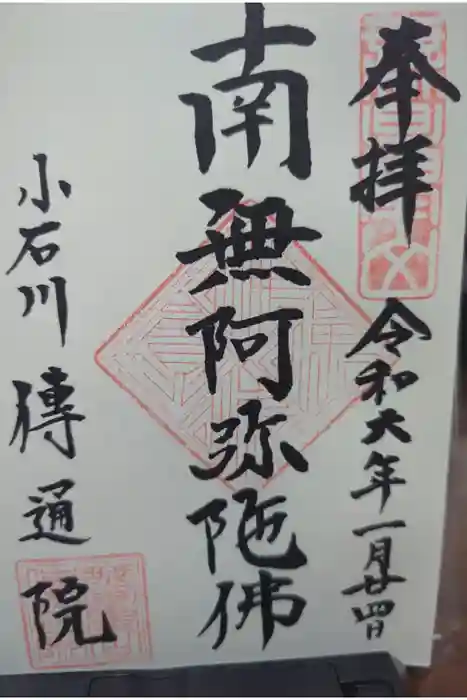 奉拝
令和六年一月廿四日
南無阿弥陀佛
小石川
傳通院